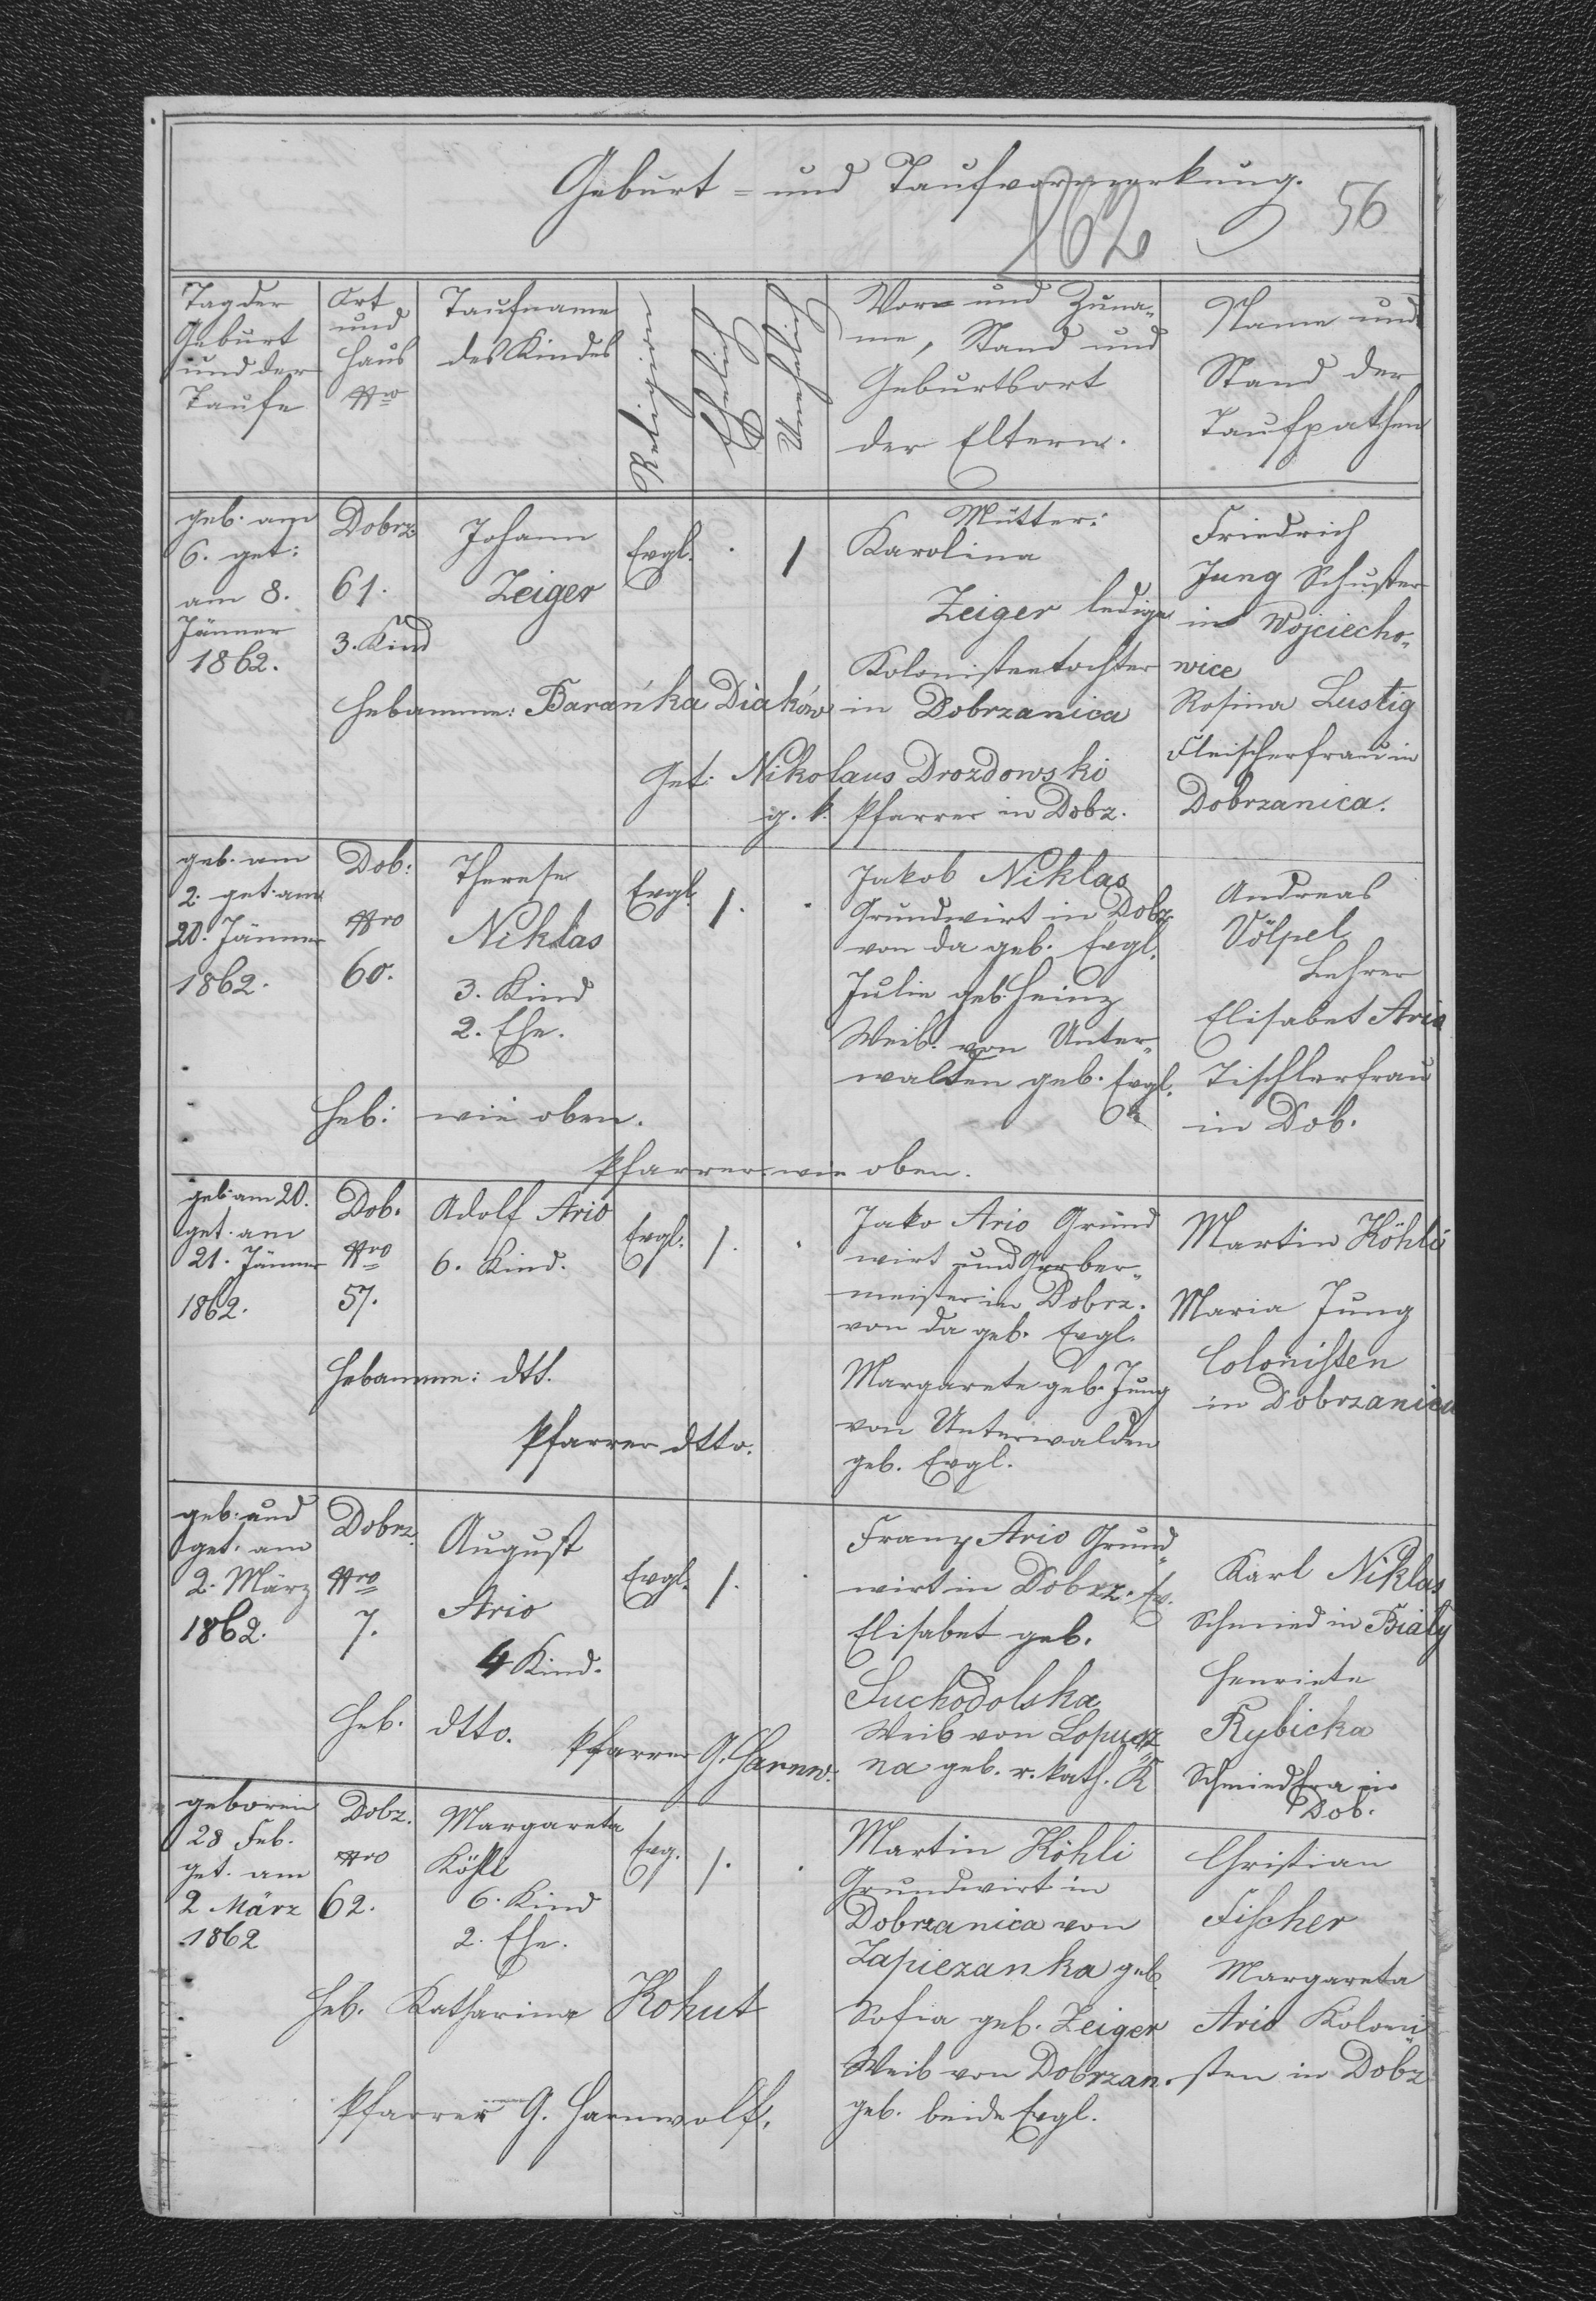 Geburt- und Taufvormerkung.
162
56
Tag der
Geburt
und der
Taufe
Ort
und
Haus
Nro
Taufname
des Kindes
Religion
Ehelich
Unehelich
Vor- und Zuna-
me, Stand und
Geburtsort
der Eltern.
Name und
Stand der
Taufpathen
geb. am
6. get:
am 8.
Jänner
1862.
Dobrz.
61.
3. Kind
Johann
Zeiger
Evgl.
1
Mutter:
Karolina
Zeiger ledige
Kolonistentochter
in Dobrzanica
Friedrich
Jung Schuster
in Wojciecho-
wice
Rosina Lustig
Fleischerfrau in
Dobrzanica.
Hebamme: Barańka Diaków
Get: Nikolaus Drozdowski
g. k. Pfarrer in Dobz.
geb. am
2. get. am
20. Jänner
1862.
Dob:
Nro
60.
Therese
Niklas
3. Kind
2. Ehe.
Evgl.
1.
Jakob Niklas
Grundwirt in Dobz.
von da geb. Evgl.
Julie geb. Heinz
Weib. von Unter-
walden geb. Evgl.
Andreas
Völpel
Lehrer
Elisabet Ario
Tischlerfrau
in Dob.
Heb: wie oben.
Pfarrer: wie oben.
geb. am 20.
get. am
21. Jänner
1862.
Dob.
Nro
57.
Adolf Ario
6. Kind.
Evgl.
1.
Jako Ario Grund
wirt und Gerber-
meister in Dobrz.
von da geb. Evgl.
Margarete geb. Jung
von Unterwalden
geb. Evgl.
Martin Köhli
Maria Jung
Colonisten
in Dobrzanica
Hebamme: dtt.
Pfarrer dtto.
geb. und
get. am
2. März
1862.
Dobrz.
Nro
7.
August
Ario
4 Kind.
Evgl.
1.
Franz Ario Grund-
wirt in Dobrz. Ev.
Elisabet geb.
Suchodolska
Weib von Lopusz
na geb. r. kath. K
Karl Niklas
Schmied in Biały
Henriete
Rybicka
in
Dob.
Heb. dtto.
Pfarrer G. Harnw.
geboren
28 Feb.
get. am
2 März
1862
Dobz.
Nro
62.
Margareta
Köhli
6. Kind
2. Ehe.
Evg.
1.
Martin Köhli
Grundwirt in
Dobrzanica von
Zapiezanka geb
Sofia geb. Zeiger
Weib von Dobrzan.
geb. beide Evgl.
Christian
Fischer
Margareta
Ario Koloni
sten in Dobz
Heb. Katharina Kohut
Pfarrer G. Harnwolf.